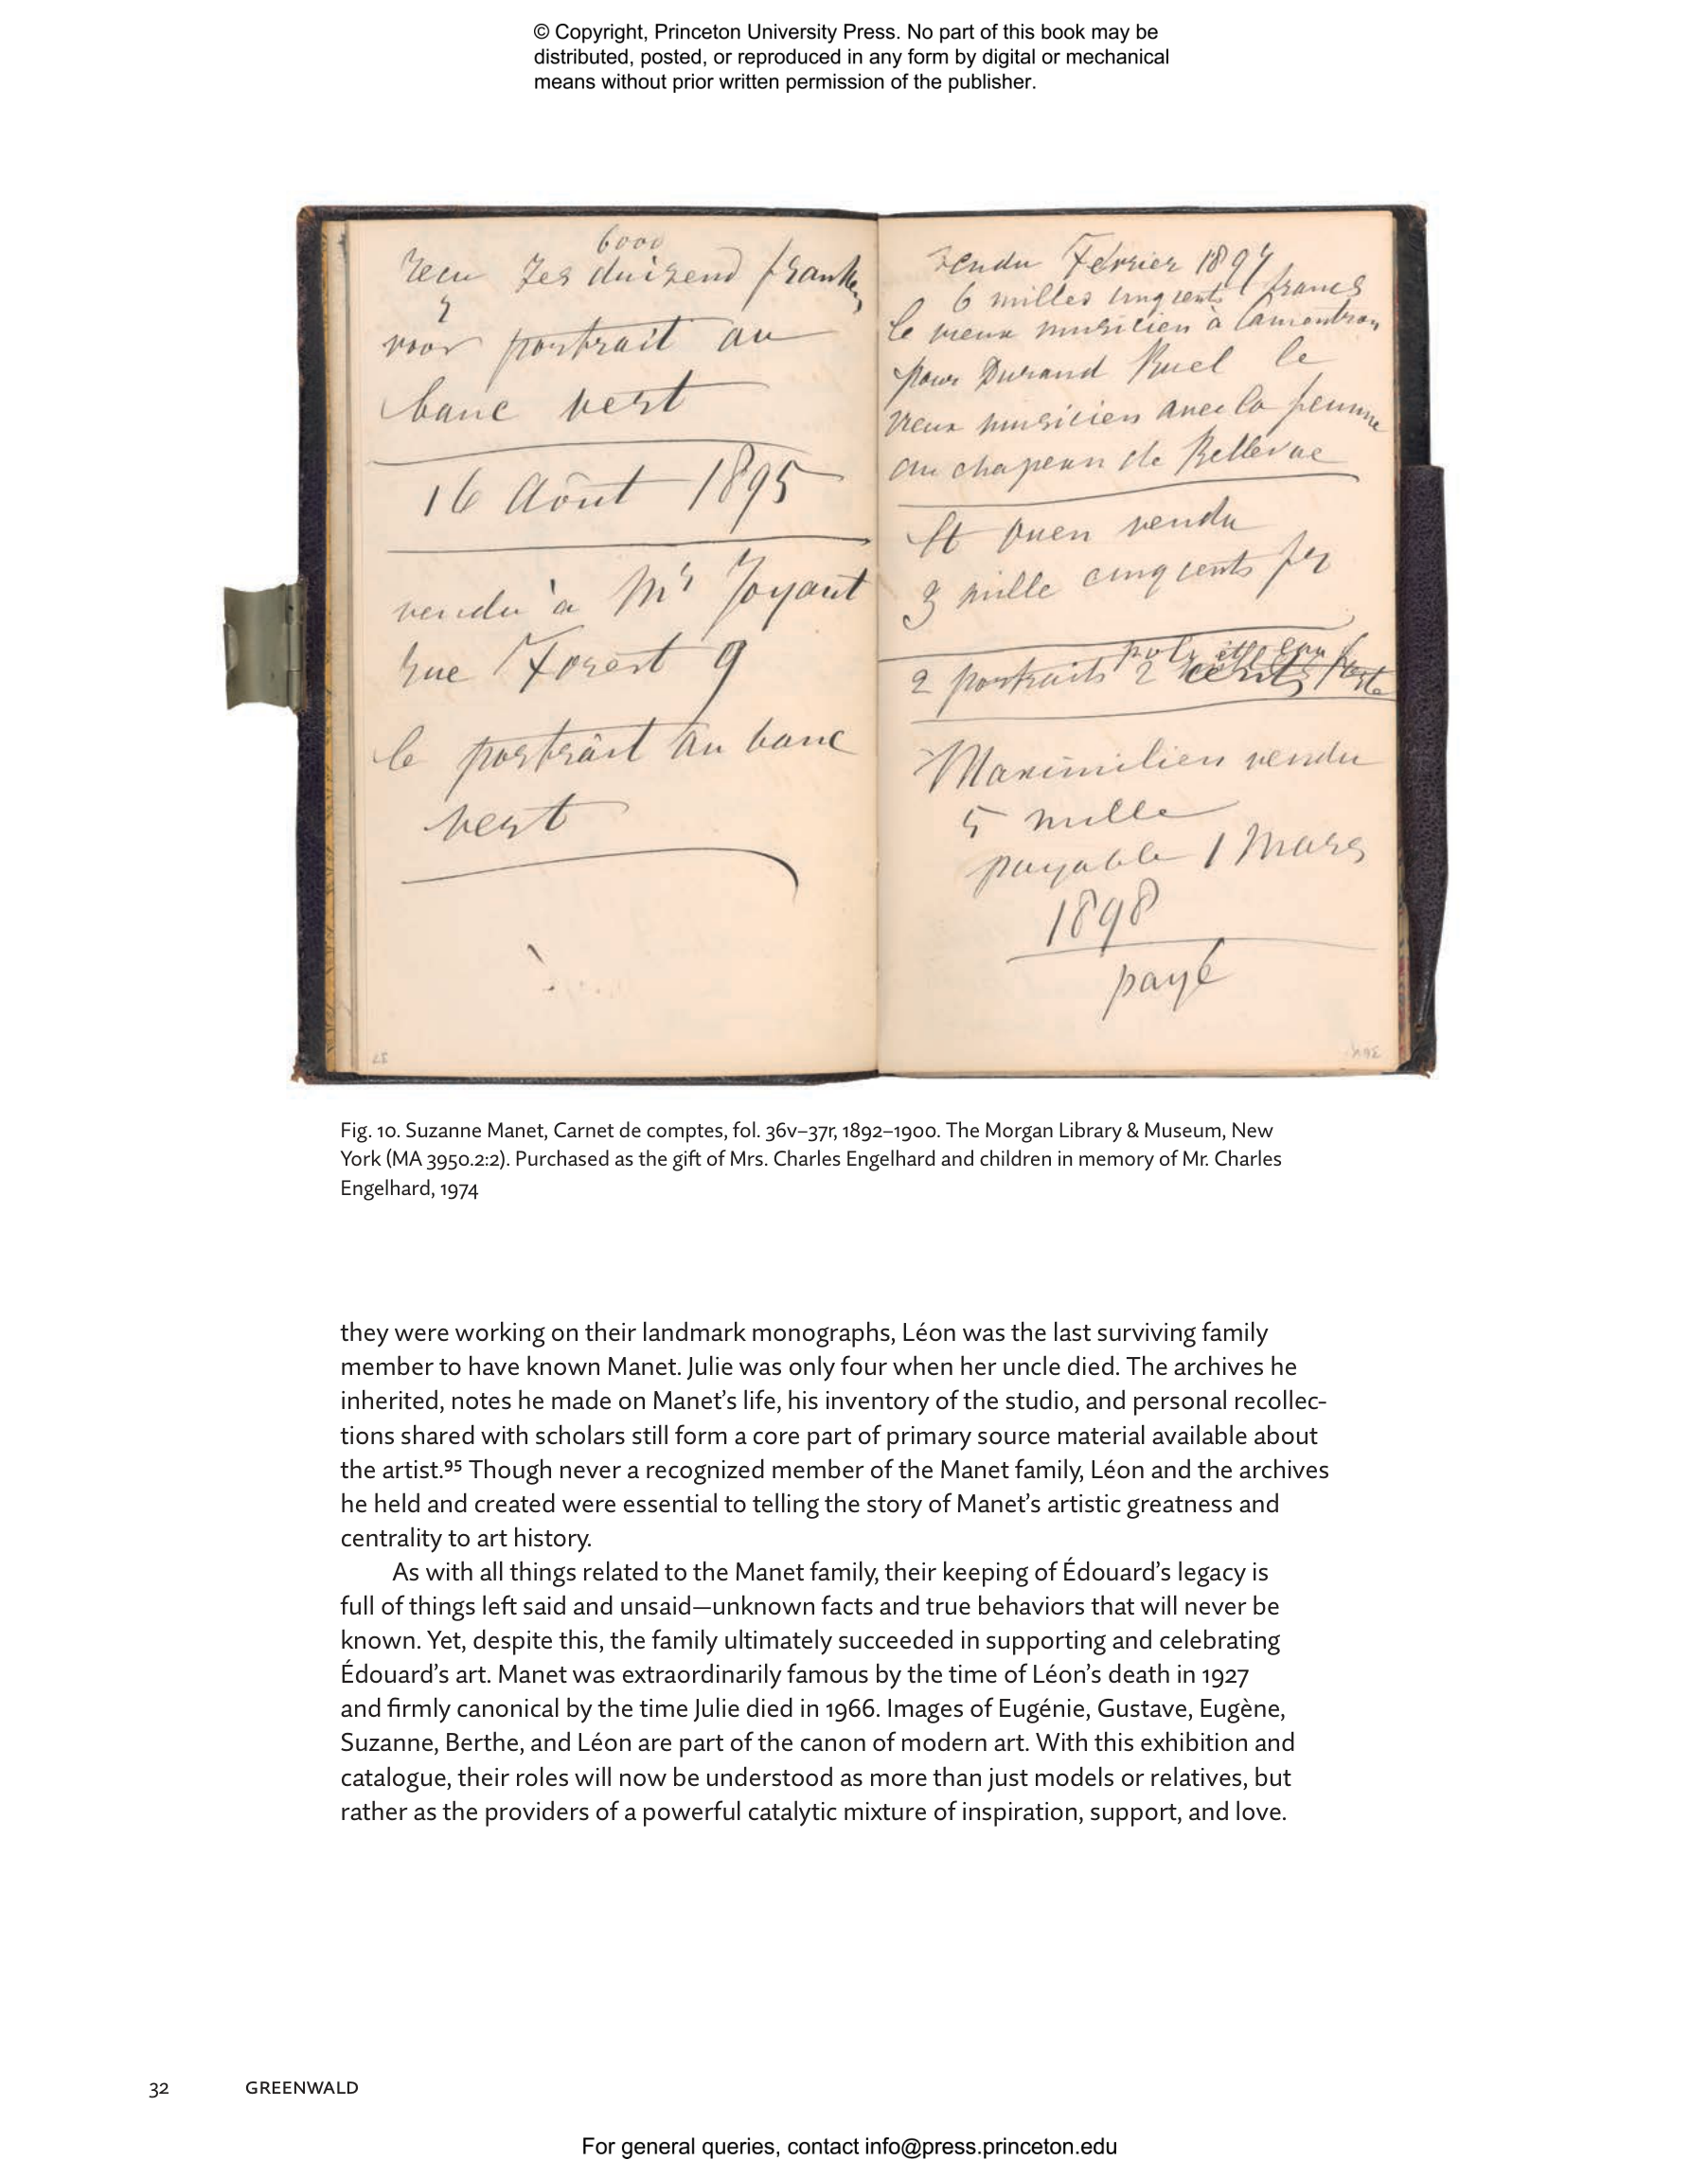 © Copyright, Princeton University Press. No part of this book may be
distributed, posted, or reproduced in any form by digital or mechanical
means without prior written permission of the publisher.
6000
recu zes duizend franken
voor portrait au
banc vert
16 Aôut 1895
vendu à Mr Joyant
rue Forest 9
le portrait au banc
vert
vendu Fevrier 1897
6 milles cinq cents francs
le vieux musicien à Camentron
pour Durand Ruel le
vieux musicien avec la femme
au chapeau de Bellevue
St Ouen vendu
3 mille cinq cents
2 portraits 2 cents
Maximilien vendu
5 mille
payable 1 Mars
1898
payé
Fig. 10. Suzanne Manet, Carnet de comptes, fol. 36v–37r, 1892–1900. The Morgan Library & Museum, New
York (MA 3950.2:2). Purchased as the gift of Mrs. Charles Engelhard and children in memory of Mr. Charles
Engelhard, 1974
they were working on their landmark monographs, Léon was the last surviving family
member to have known Manet. Julie was only four when her uncle died. The archives he
inherited, notes he made on Manet’s life, his inventory of the studio, and personal recollec-
tions shared with scholars still form a core part of primary source material available about
the artist.⁹⁵ Though never a recognized member of the Manet family, Léon and the archives
he held and created were essential to telling the story of Manet’s artistic greatness and
centrality to art history.
As with all things related to the Manet family, their keeping of Édouard’s legacy is
full of things left said and unsaid—unknown facts and true behaviors that will never be
known. Yet, despite this, the family ultimately succeeded in supporting and celebrating
Édouard’s art. Manet was extraordinarily famous by the time of Léon’s death in 1927
and firmly canonical by the time Julie died in 1966. Images of Eugénie, Gustave, Eugène,
Suzanne, Berthe, and Léon are part of the canon of modern art. With this exhibition and
catalogue, their roles will now be understood as more than just models or relatives, but
rather as the providers of a powerful catalytic mixture of inspiration, support, and love.
32 GREENWALD
For general queries, contact info@press.princeton.edu